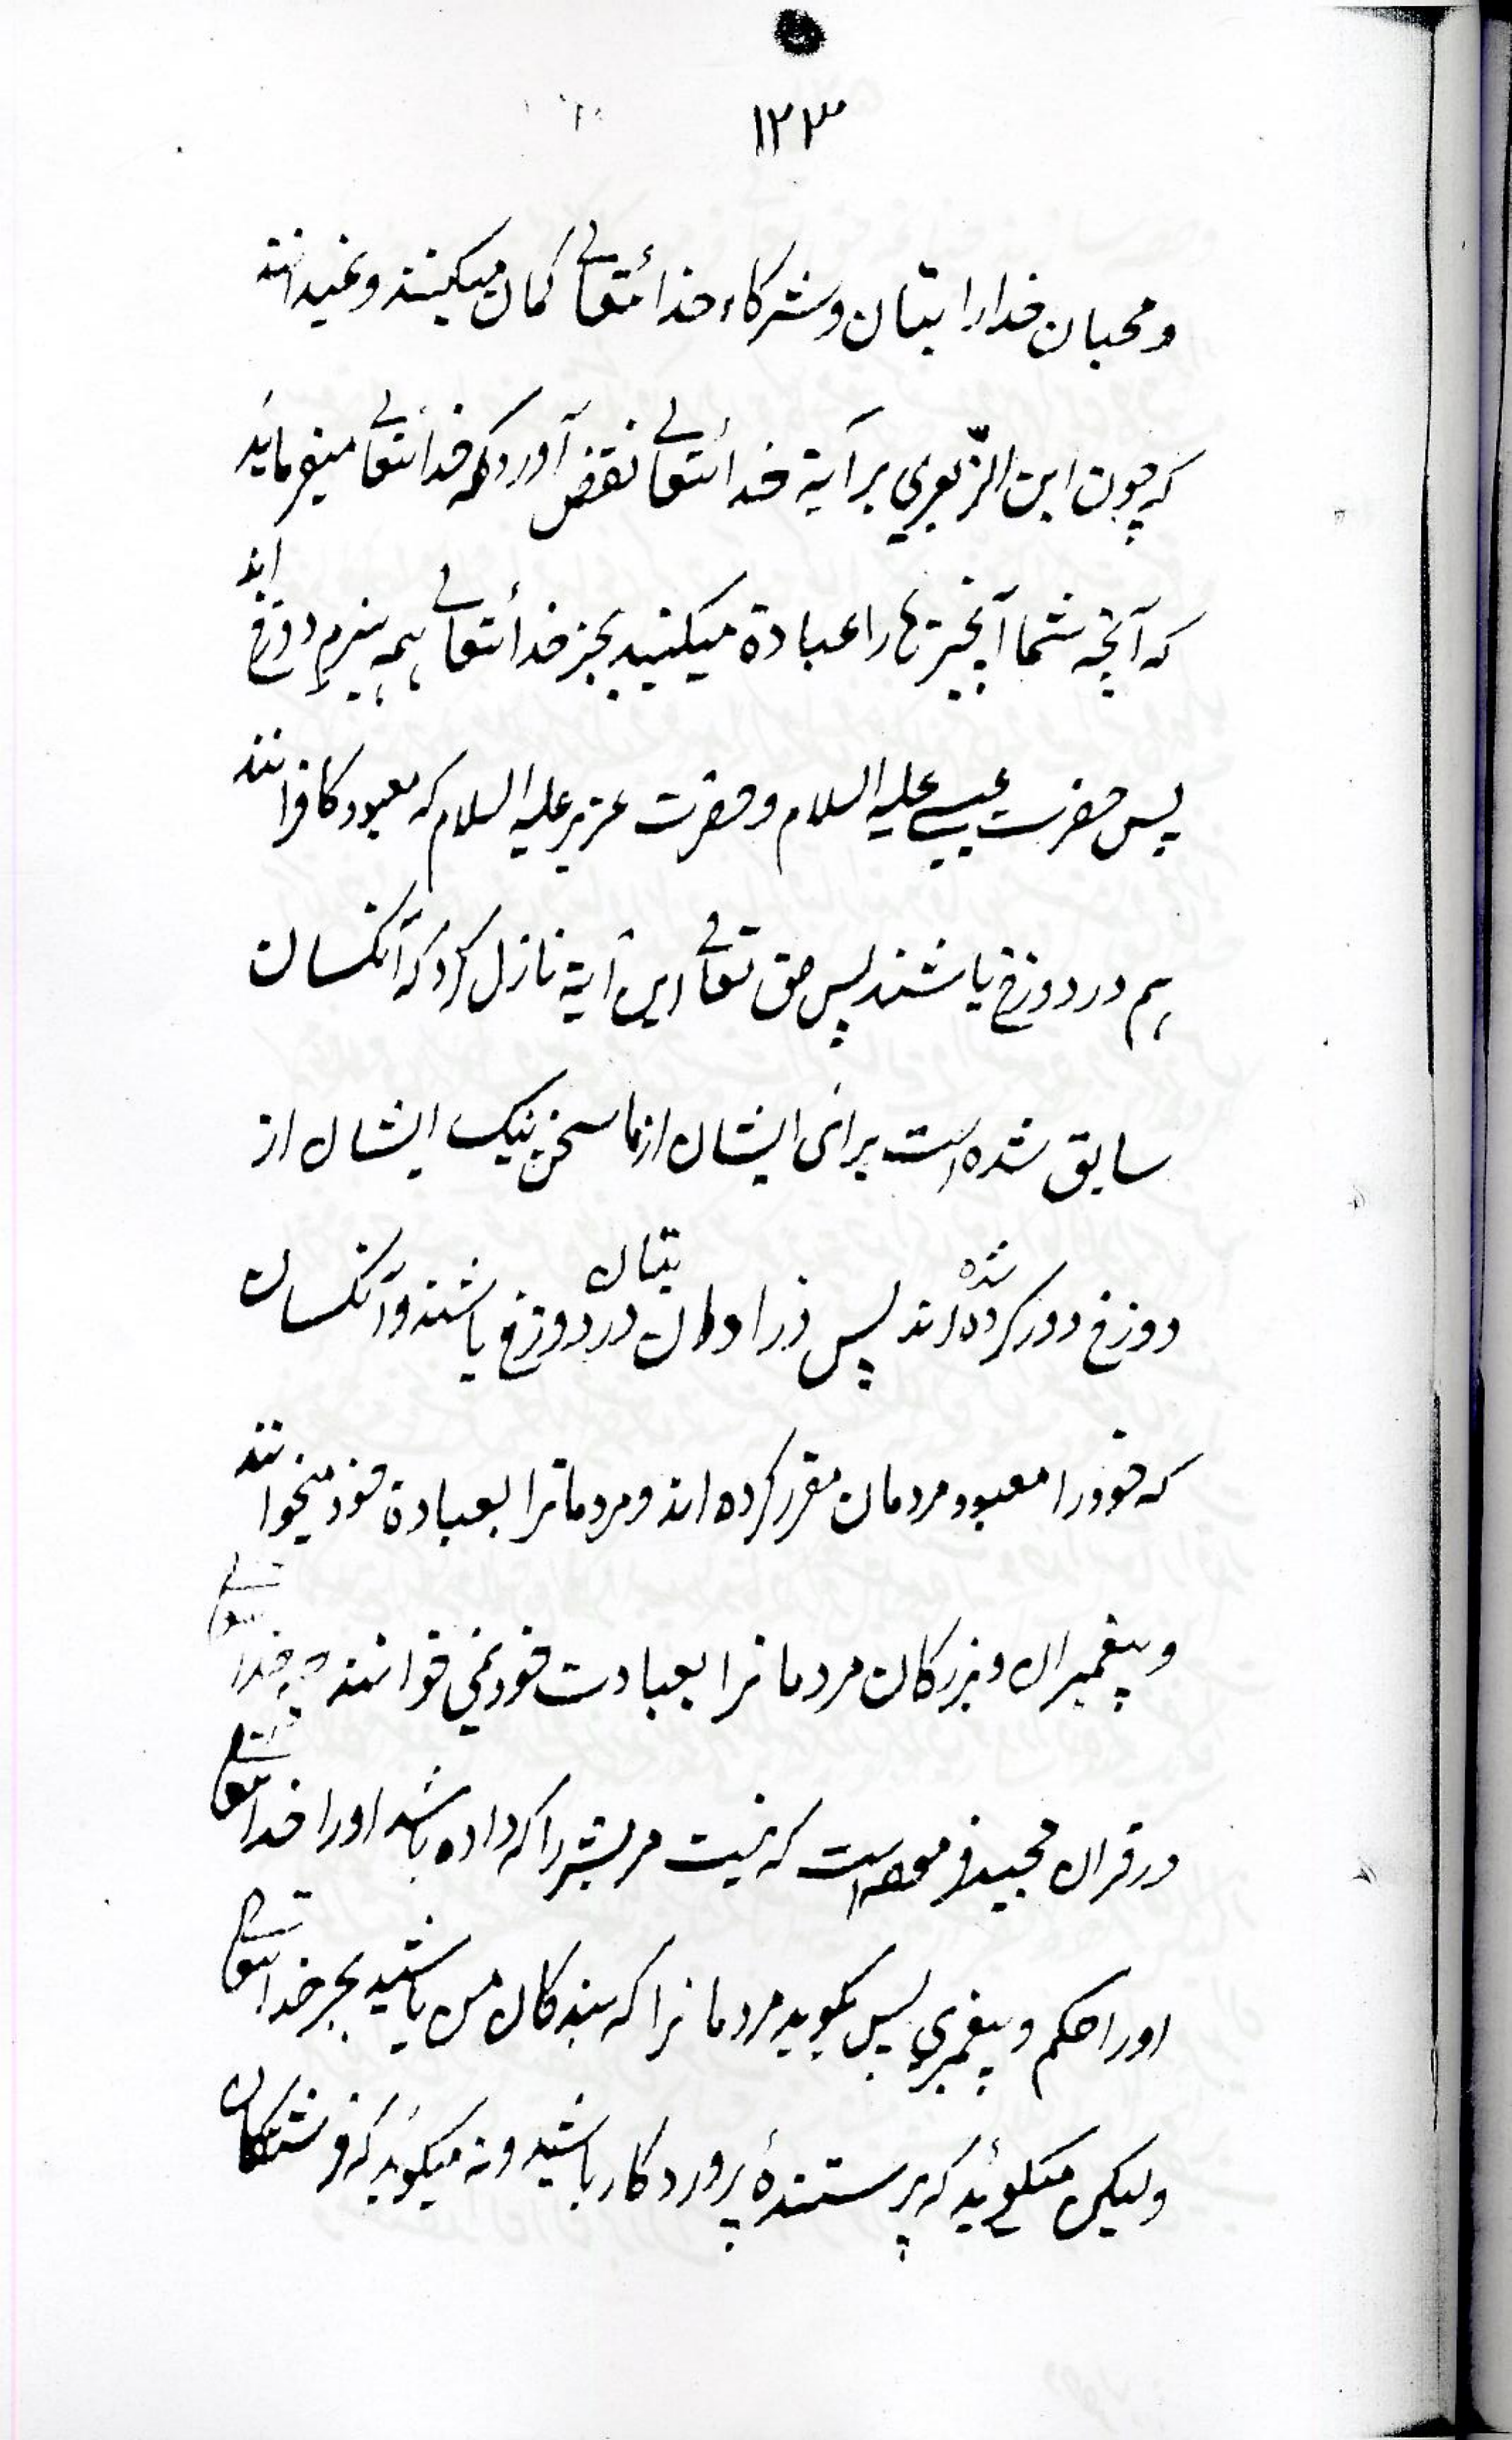 ۱۲۳
ومحبان خدارا بتان وشرکاء خدائتعالی کمان میکنند ونمیدانند
که چون ابن الزّبعری بر آیة خدائتعالی نقض آورد که خدائتعالی میفرماید
که آنچه شما آنچیزها را عبادة میکنید بجز خدائتعالی همه هیزم دوزخ اند
پس حضرت عیسی علیه السلام وحضرت عزیر علیه السلام که معبود کافرانند
هم در دوزخ باشند پس حق تعالی این آیة نازل کرد که آنکسان
سابق شده است برای ایشان از ما سخن نیک ایشان از
دوزخ دور کرده شده اند پس بتان در دوزخ باشند وآنکسان
که خودرا معبود مردمان مقرر کرده اند ومردمانرا بعبادة خود میخوانند
وپیغمبران وبزرکان مردمانرا بعبادت خود نمی خوانند چه خدایتعالی
در قران مجید فرموده است که نیست مر بشر را که داده باشد اورا خدایتعالی
اورا حکم وپیغمبری پس بکوید مردمانرا که بندکان من باشید بجز خدایتعالی
ولیکن میکوئید که پرستندهٔ پروردکار باشید ونه میکوید که فرشتکان